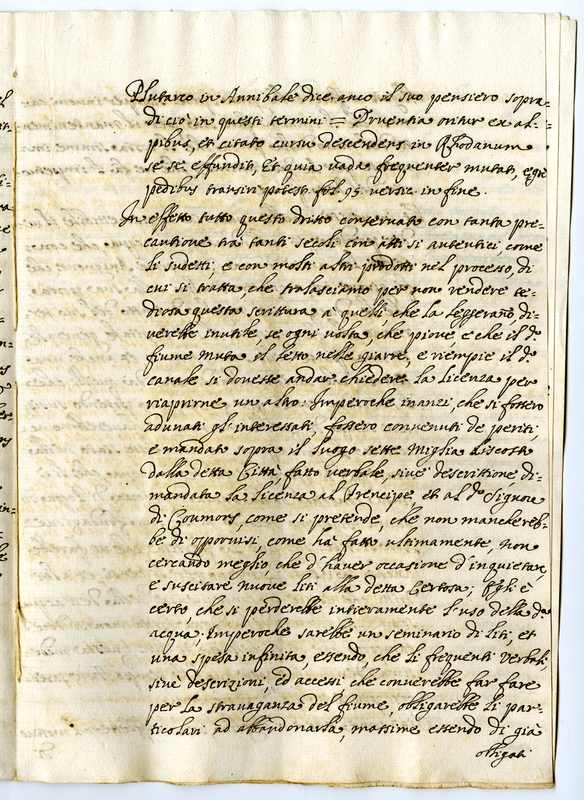 Plutarco in Annibale dice anco il suo pensiero sopra-
di ciò in questi termini = Druentia oritur ex al-
pibus, et citato cursu descendens in Rhodanum
se se effundit, Et quia vada frequenter mutat, egre
pedibus transiri potest fol. 95. verso in fine.
In effetto tutto questo dritto conservato con tanta pre-
cautione trà tanti secoli con atti si autentici, come
li sudetti, e con molti altri prodotti nel processo, di
cui si tratta, che tralasciamo per non rendere te-
diosa questa scrittura à quelli, che la leggerano, di-
verebbe inutile, se ogni volta, che piove, e che il do
fiume muta il letto nelle giarre, e riempie il do
canale si dovesse andar chiedere la licenza per
riaprirne un altro: Imperoche inanzi, che si fossero
adunati gl' interessati, fossero convenuti de periti,
e mandato sopra il luogo sette miglia discosto
dalla detta Città fatto verbale, sive descrittione, di-
mandata la licenza al Prencipe et al do Signore
di Coumors, come si pretende, che non mancareb-
be di opporvisi come ha fatto ultimamente, non
cercando meglio che d'haver occasione d'inquietare,
e suscitare nuove liti alla detta Certosa; Egli è
certo, che si perderebbe intieramente l'uso della da
acqua, Imperoche sarebbe un seminario di liti, et
una spesa infinita, essendo, che li frequenti verbali
sive descrizioni, ed accessi che converebbe far fare
per la stravaganza del fiume, obligarebbe li par-
ticolari ad abbandonarla, massime essendo di già
obligati